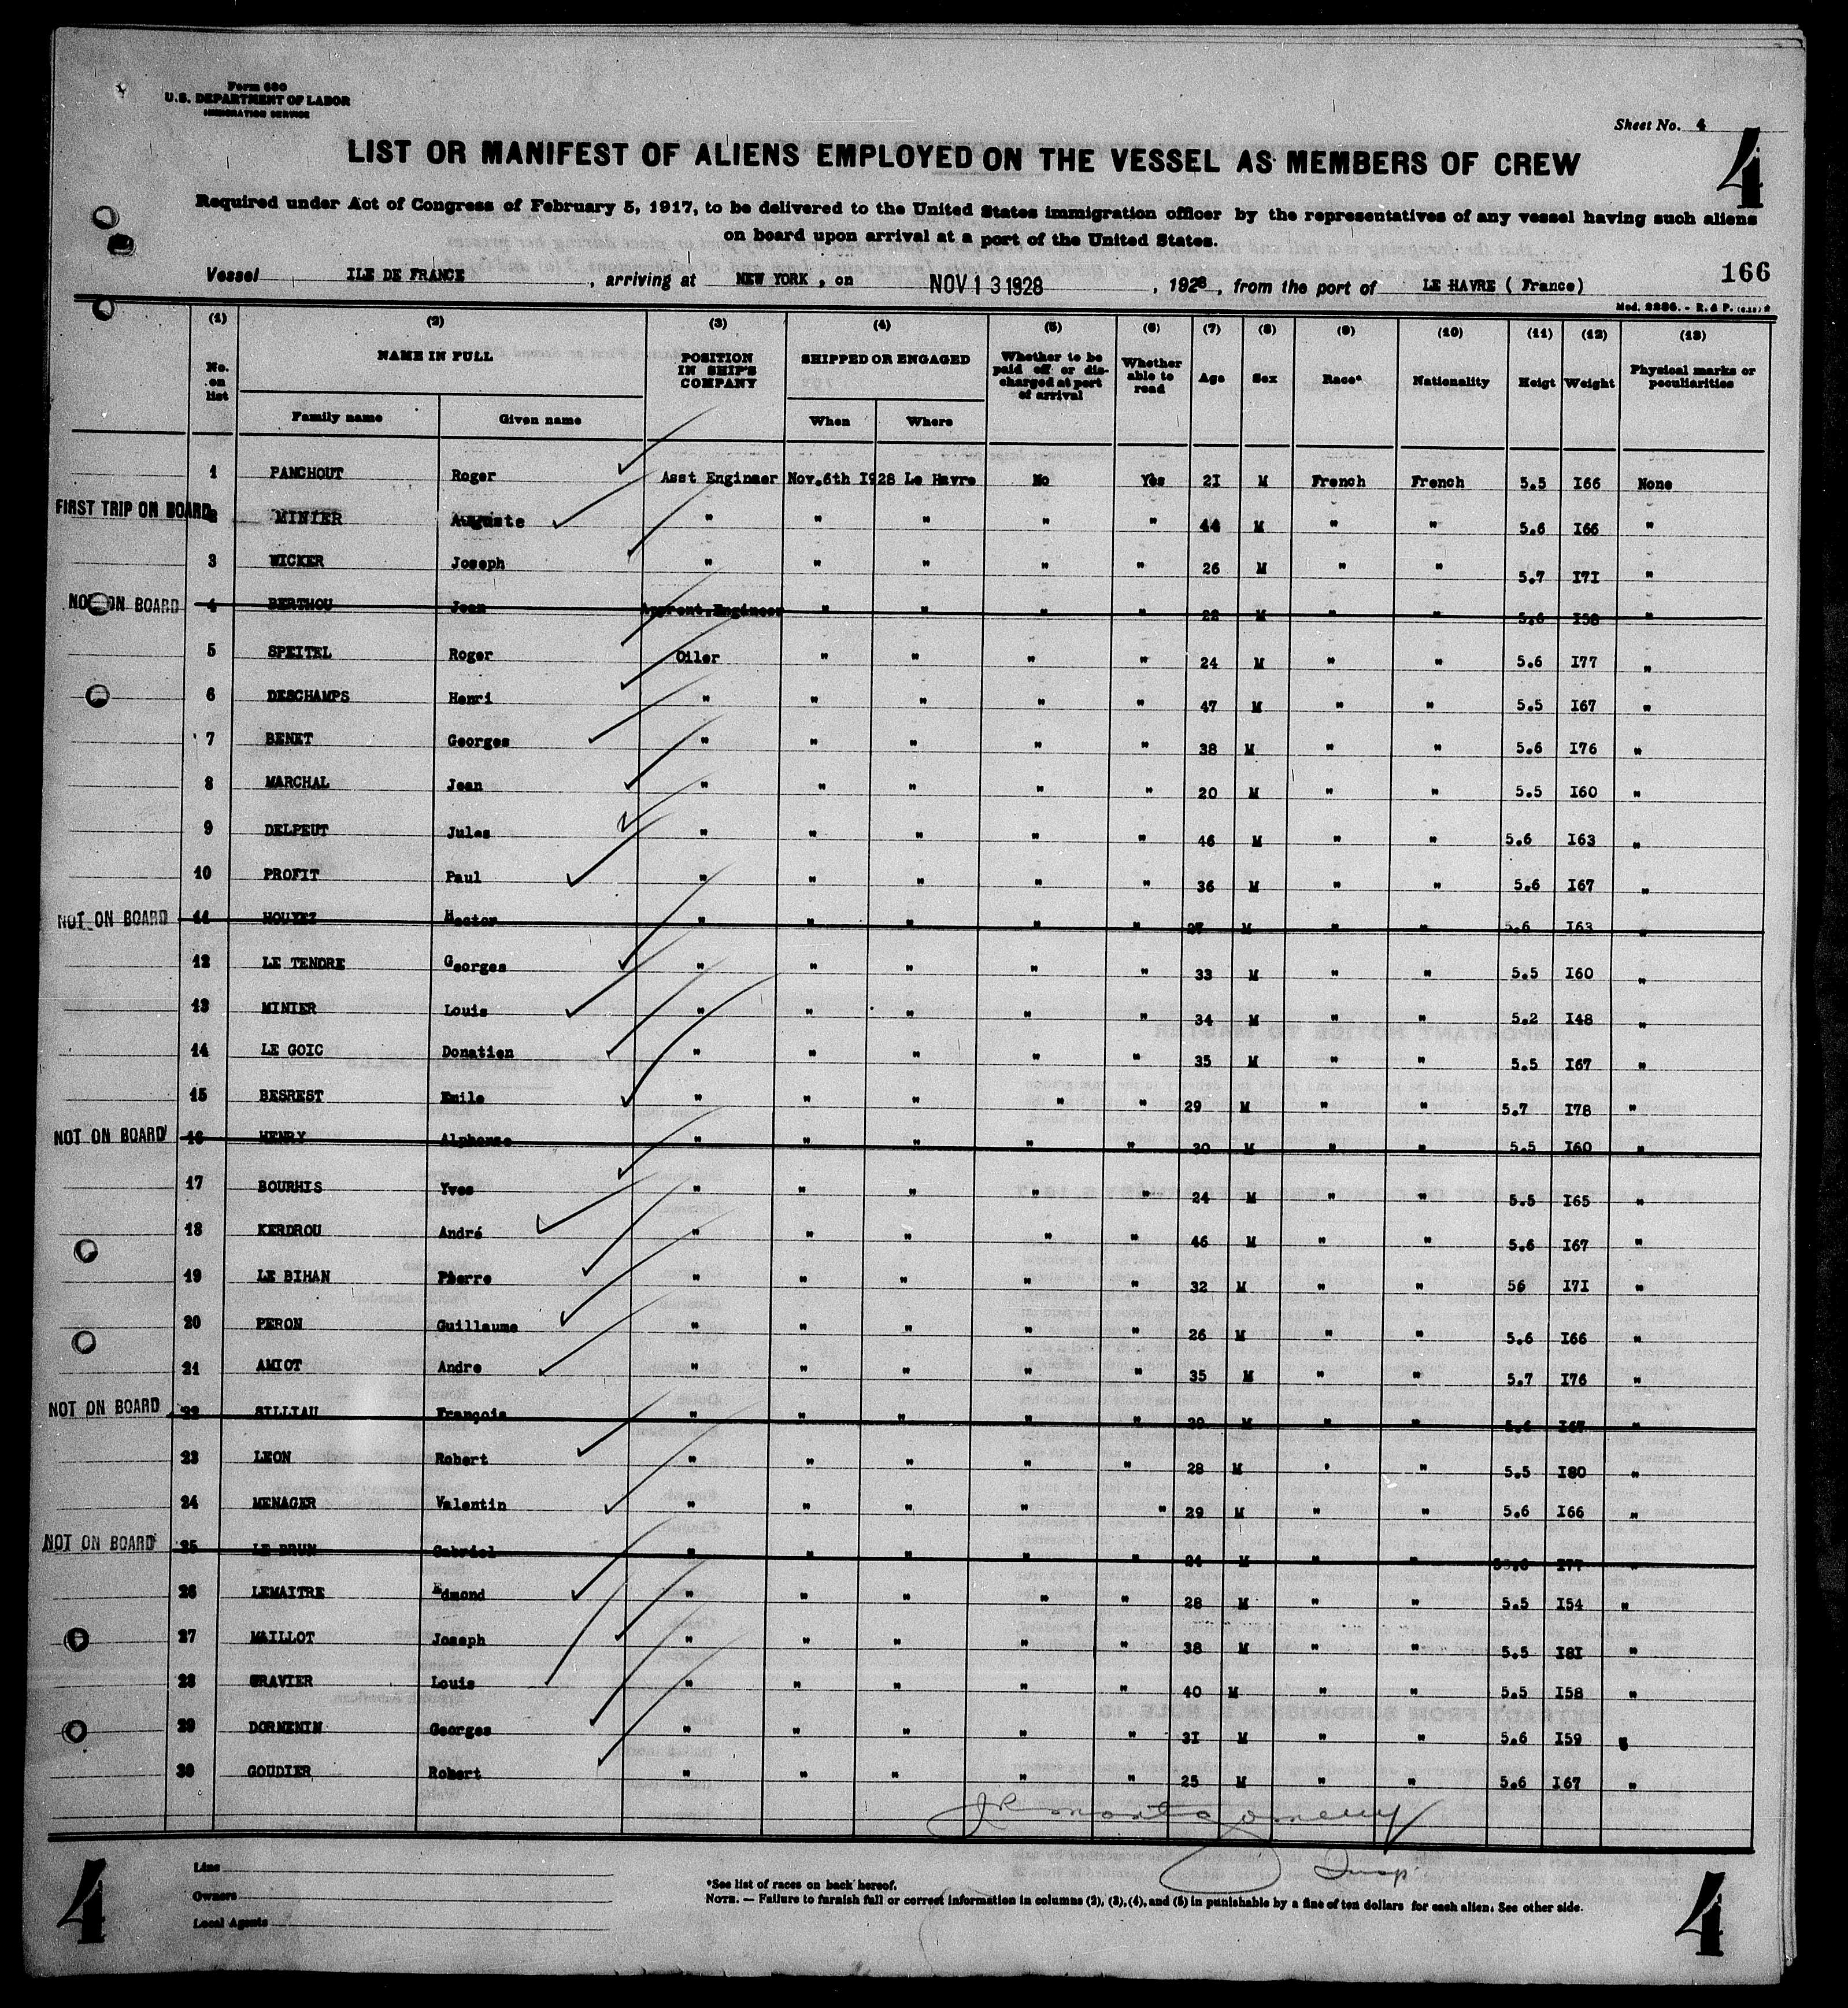 Form 680
U.S. DEPARTMENT OF LABOR
IMMIGRATION SERVICE
Sheet No. 4
4
LIST OR MANIFEST OF ALIENS EMPLOYED ON THE VESSEL AS MEMBERS OF CREW
Required under Act of Congress of February 5, 1917, to be delivered to the United States immigration officer by the representatives of any vessel having such aliens
on board upon arrival at a port of the United States.
166
Vessel ILE DE FRANCE, arriving at NEW YORK, on NOV 13 1928, 1928, from the port of LE HAVRE ( France)
Mod. 2286. - R. & P.
(1) (2) (3) (4) (5) (6) (7) (8) (9) (10) (11) (12) (13)
No. on list NAME IN FULL POSITION IN SHIP'S COMPANY SHIPPED OR ENGAGED Whether to be paid off or discharged at port of arrival Whether able to read Age Sex Race* Nationality Heigt Weight Physical marks or peculiarities
Family name Given name When Where
1 PANCHOUT Roger Asst Engineer Nov.6th I928 Le Havre No Yes 2I M French French 5.5 I66 None
FIRST TRIP ON BOARD 2 MINIER Auguste " " " " " 44 M " " 5.6 I66 "
3 WICKER Joseph " " " " " 26 M " " 5.7 I7I "
NOT ON BOARD 4 BERTHOU Jean Apprent.Engineer " " " " 22 M " " 5.6 I58 "
5 SPEITEL Roger Oiler " " " " 24 M " " 5.6 I77 "
6 DESCHAMPS Henri " " " " " 47 M " " 5.5 I67 "
7 BENET Georges " " " " " 38 M " " 5.6 I76 "
8 MARCHAL Jean " " " " " 20 M " " 5.5 I60 "
9 DELPEUT Jules " " " " " 46 M " " 5.6 I63 "
10 PROFIT Paul " " " " " 36 M " " 5.6 I67 "
NOT ON BOARD 11 HOUYEZ Hector " " " " " 27 M " " 5.6 I63 "
12 LE TENDRE Georges " " " " " 33 M " " 5.5 I60 "
13 MINIER Louis " " " " " 34 M " " 5.2 I48 "
14 LE GOIC Donatien " " " " " 35 M " " 5.5 I67 "
15 BESREST Emile " " " " " 29 M " " 5.7 I78 "
NOT ON BOARD 16 HENRY Alphonse " " " " " 30 M " " 5.5 I60 "
17 BOURHIS Yves " " " " " 24 M " " 5.5 I65 "
18 KERDROU André " " " " " 46 M " " 5.6 I67 "
19 LE BIHAN Pierre " " " " " 32 M " " 56 I7I "
20 PERON Guillaume " " " " " 26 M " " 5.6 I66 "
21 AMIOT Andre " " " " " 35 M " " 5.7 I76 "
NOT ON BOARD 22 SILLIAU François " " " " " M " " 5.6 I67 "
23 LEON Robert " " " " " 28 M " " 5.5 I80 "
24 MENAGER Valentin " " " " " 29 M " " 5.6 I66 "
NOT ON BOARD 25 LE BRUN Gabriel " " " " " M " " I77 "
26 LEMAITRE Edmond " " " " " 28 M " " 5.5 I54 "
27 MAILLOT Joseph " " " " " 38 M " " 5.5 I8I "
28 GRAVIER Louis " " " " " 40 M " " 5.5 I58 "
29 DORMENIN Georges " " " " " 3I M " " 5.6 I59
30 GOUDIER Robert " " " " " 25 M " " 5.6 I67 "
JR Montgomery
Insp
4
Line
Owners
Local Agents
*See list of races on back hereof.
NOTE. — Failure to furnish full or correct information in columns (2), (3), (4), and (5) in punishable by a fine of ten dollars for each alien. See other side.
4